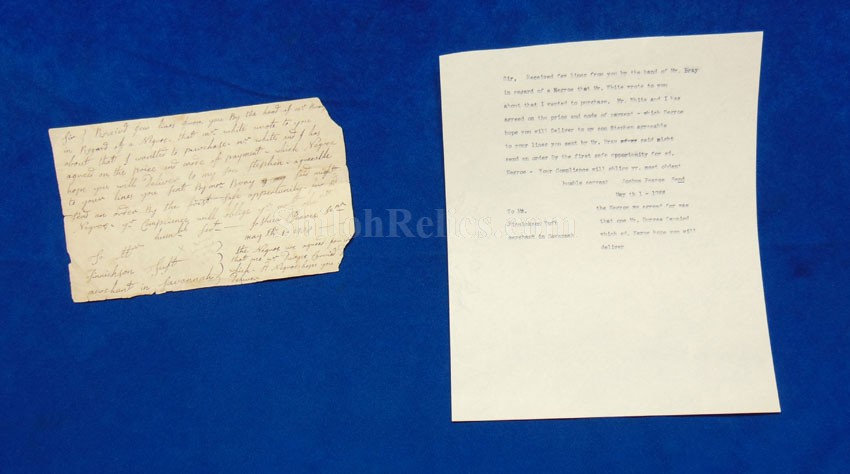 Sir I Received few lines from you By the hand of mr
in Regard of a Negroe that mr white wrote to you
about that I wanted to purchase mr white and I has
agreed on the price and mode of payment which Negroe
hope you will Deliver to my son Stephen agreeable
to your lines you sent By mr Bray
send an order By the first safe oppertunity
Negroe yr Compliance will oblige yr
humle Servt
may th 1
To Mr
merchant in Savannah
the Negroe we agreed for
that one mr
which Negroe hope you
Deliver
ShilohRelics.com
Sir, Received few lines from you by the hand of Mr. Bray
in regard of a Negroe that Mr. White wrote to you
about that I wanted to purchase. Mr. White and I has
agreed on the price and mode of payment - which Negroe
hope you will Deliver to my son Stephen agreeable
to your lines you sent by Mr. Bray said might
send an order by the first safe opportunity for sd.
Negroe - Your Compliance will oblige yr. most obident
humble servant
May th 1 -
To Mr.
merchant in Savannah
the Negroe we agreed for was
that one Mr.
which sd. Negroe hope you will
deliver